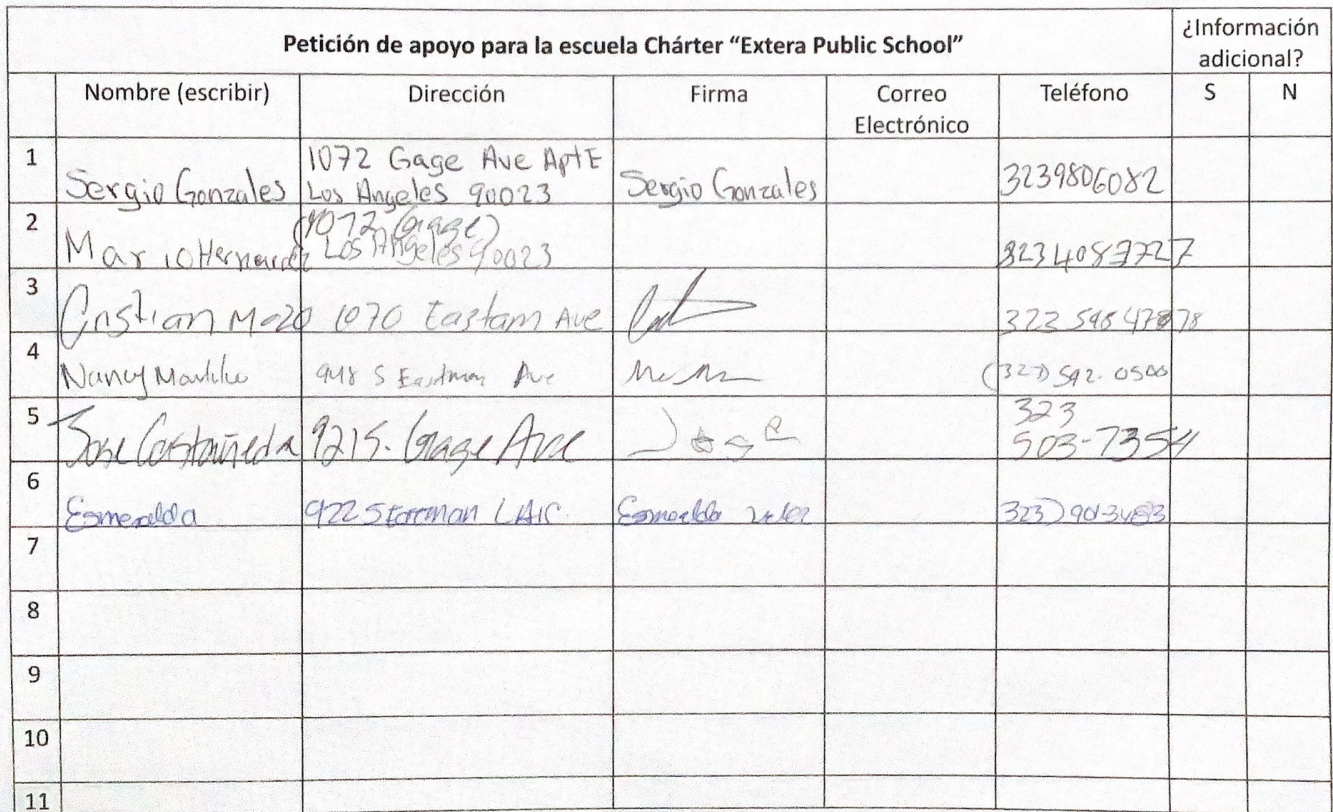 Petición de apoyo para la escuela Chárter “Extera Public School”
¿Información adicional?
Nombre (escribir) Dirección Firma Correo Electrónico Teléfono S N
1 Sergio Gonzales 1072 Gage Ave Apt E Los Angeles 90023 Sergio Gonzales 3239806082
2 Mario Hernandez (1072 Gage) Los Angeles 90023 3234087727
3 Cristian 1070 Eastam Ave
4 Nancy 948 S Eastman Ave 592-0500
5 Jose Castañeda Gage Ave Jose 323 503-7354
6 Esmeralda 922 S Esmeralda 323)
7
8
9
10
11